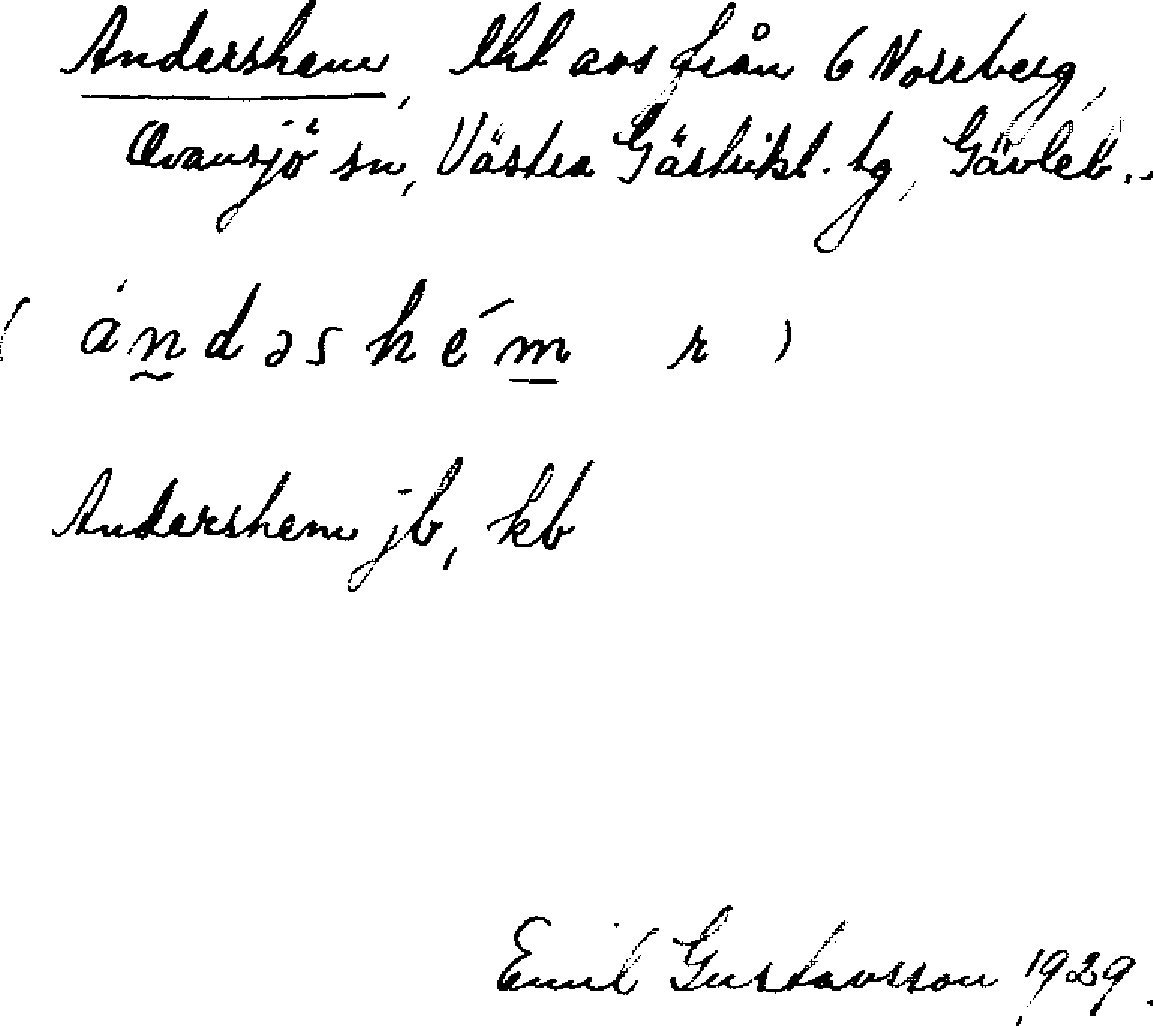 Andershem, lht avs från 6 Norrberg,
Ovansjö sn, Västra Gästrikl. tg, Gävleb..
( ándəshém r )
Andershem jb, kb
Emil Gustavsson 1929.